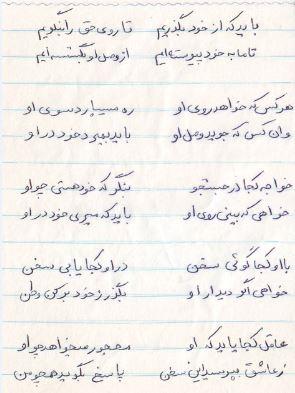 باید که از خود بگذریم تا روی حق را بنگریم
تا ما به خود پیوسته‌ایم از وصل او بگسسته‌ایم
هر کس که خواهد روی او ره میسپارد سوی او
وان کس که جوید وصل او باید بمیرد خود در او
خواجه کجا در جستجو بنگر که خود هستی چو او
خواهی که بینی روی او باید که میری خود در او
با او کجا گوئی سخن در او کجا یابی سخن
خواهی اگر دیدار او بگذر ز خود بر کن وطن
عاقل کجا یابد که او مهجور میخواهد چو او
ز عاشقی بپرسید این سخن پاسخ بگوید همچو من